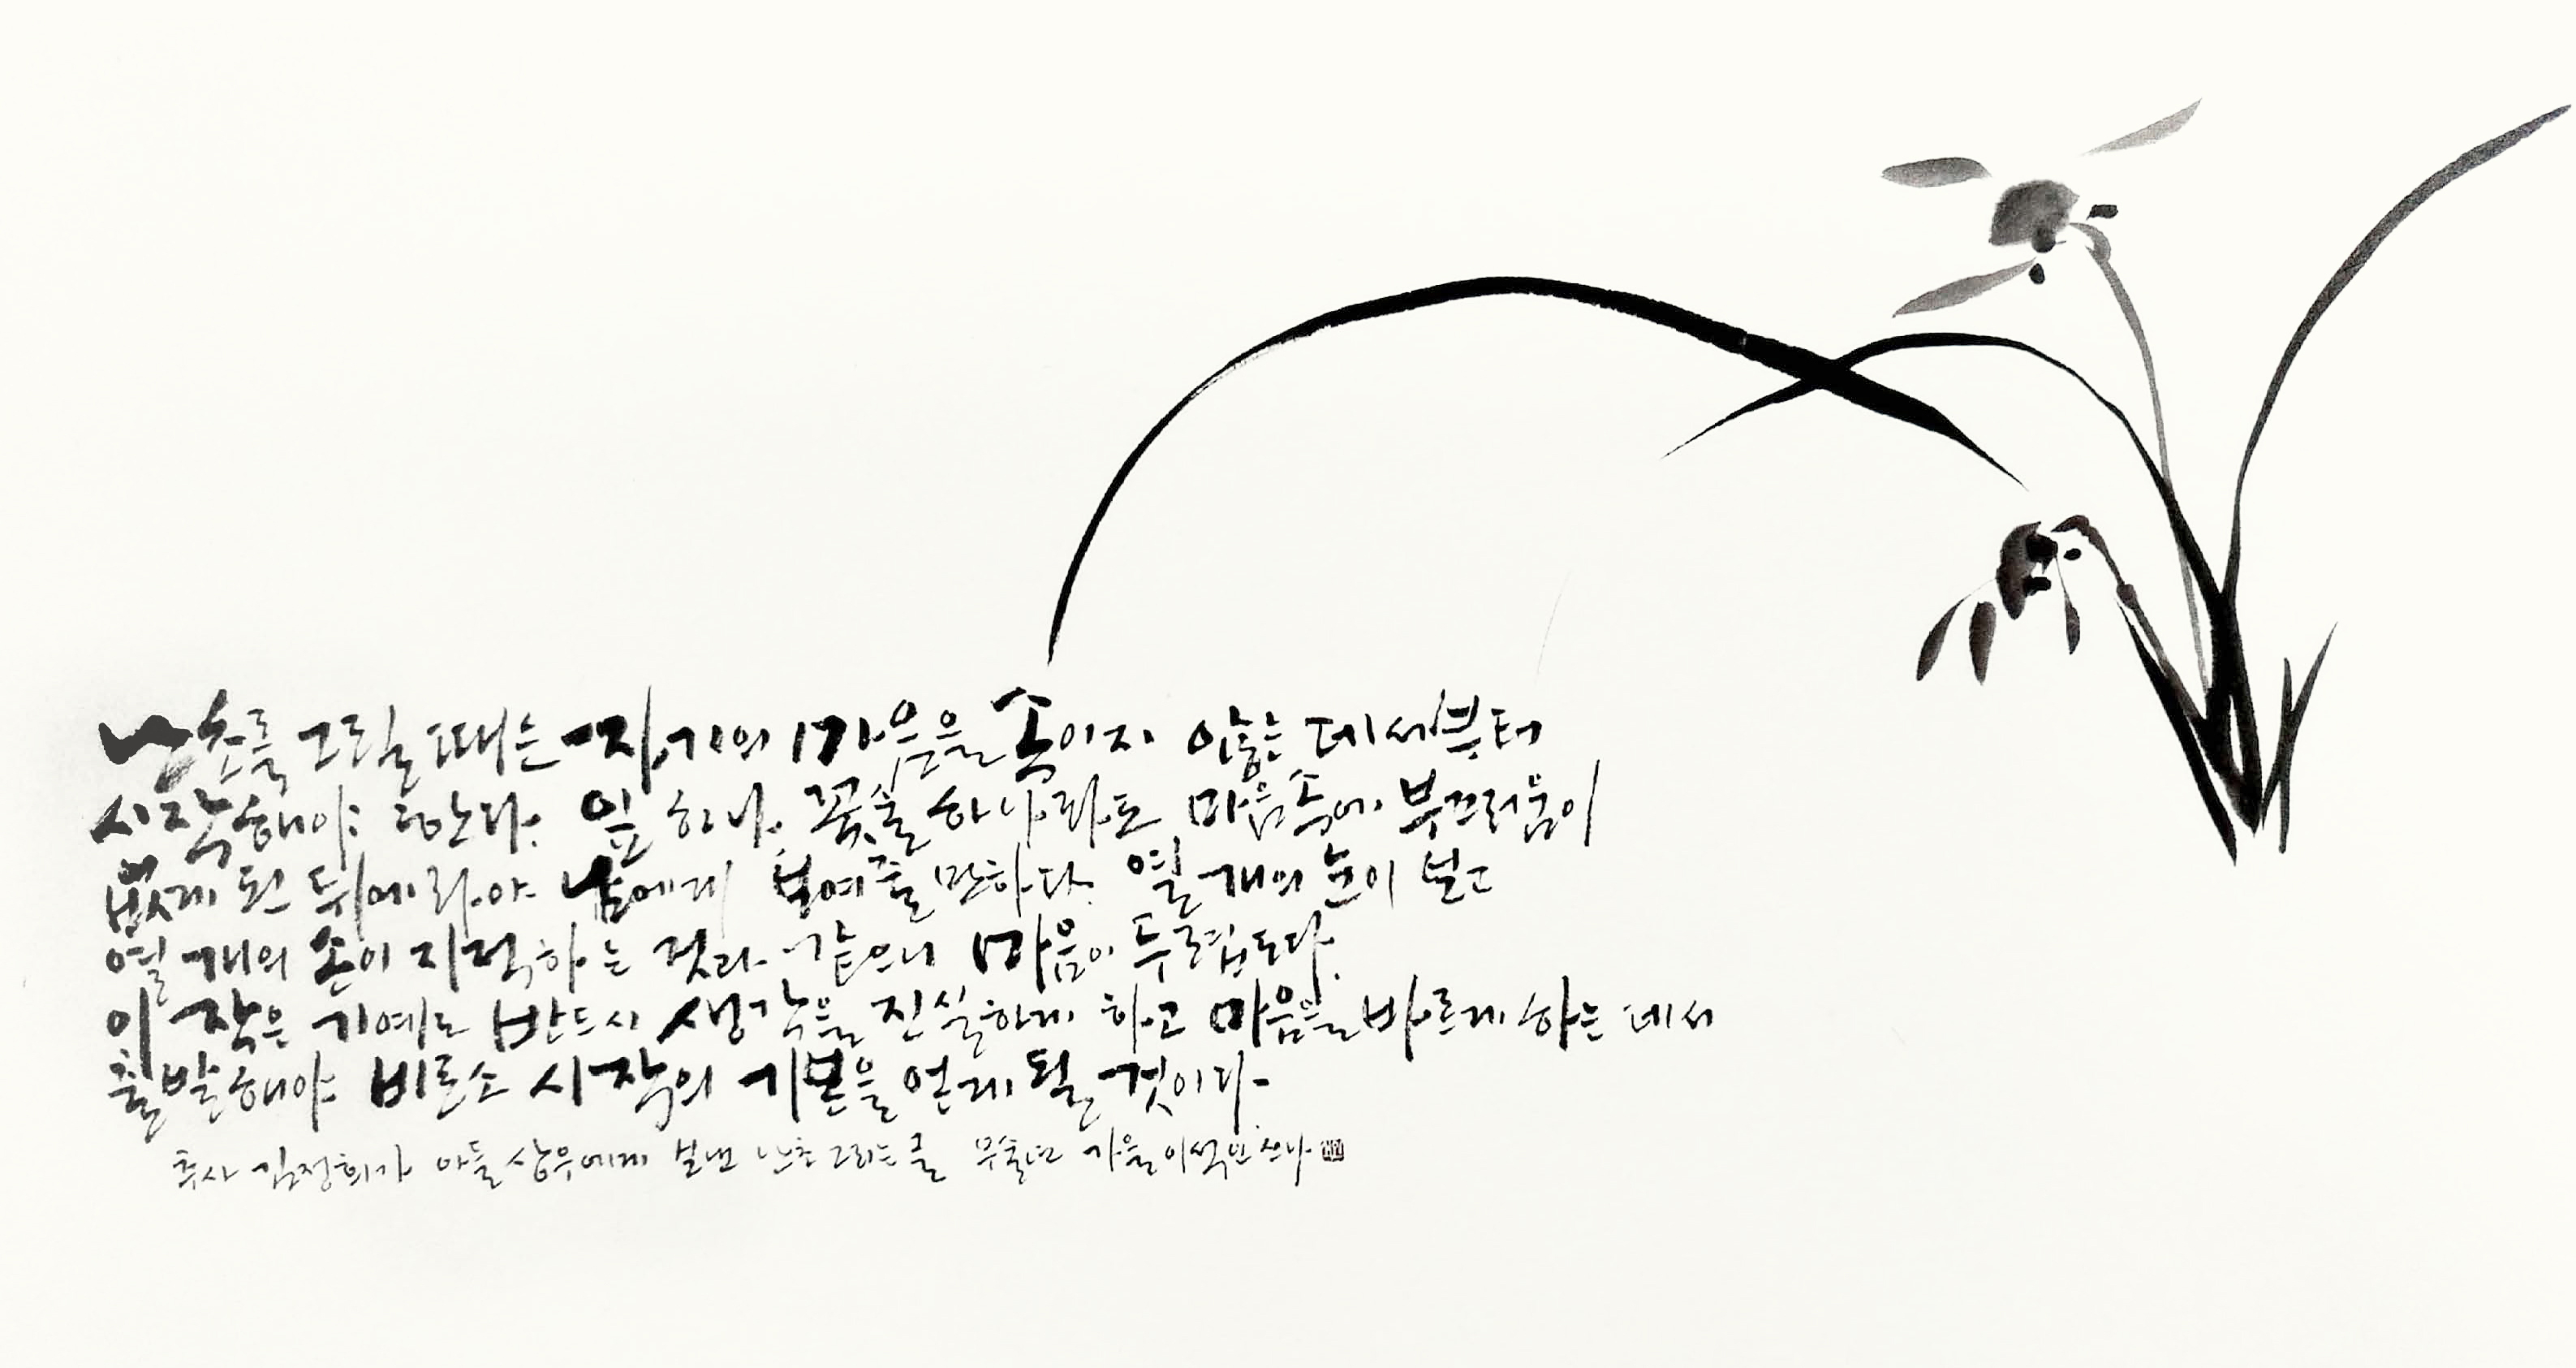 난초를 그릴 때는 자기의 마음을 속이지 않는 데서부터
시작해야 한다. 잎 하나, 꽃술 하나라도 마음속에 부끄러움이
없게 된 뒤에라야 남에게 보여줄 만하다. 열 개의 눈이 보고
열 개의 손이 지적하는 것과 같으니 마음이 두렵도다.
이 작은 기예도 반드시 생각을 진실하게 하고 마음을 바르게 하는 데서
출발해야 비로소 시작의 기본을 얻게 될 것이다.
추사 김정희가 아들 상우에게 보낸 난초 그리는 글 무술년 가을 이석인 쓰다